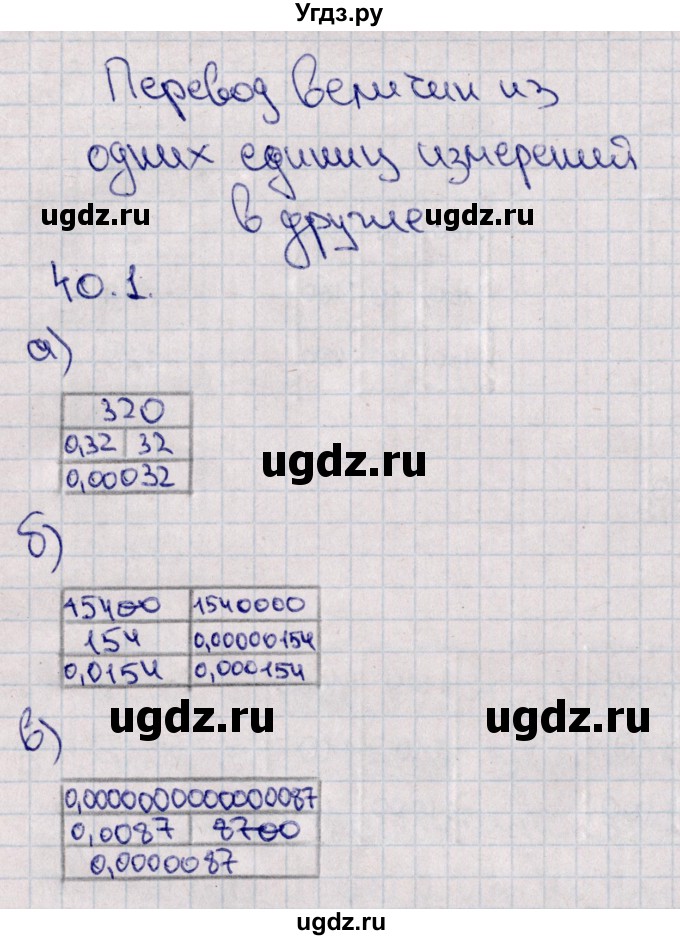 Угдз.ру
Перевод величин из
одних единиц измерений
ugdz.ru в другие ugdz.ru
40.1.
а)
320
0,32 32
ugdz.ru
0,00032
б)
15400 1540000
154 0,00000154
0,0154 0,000154
ugdz.ru ugdz.ru
в)
0,0000000000000087
0,0087 8700
0,0000087
ugdz.ru